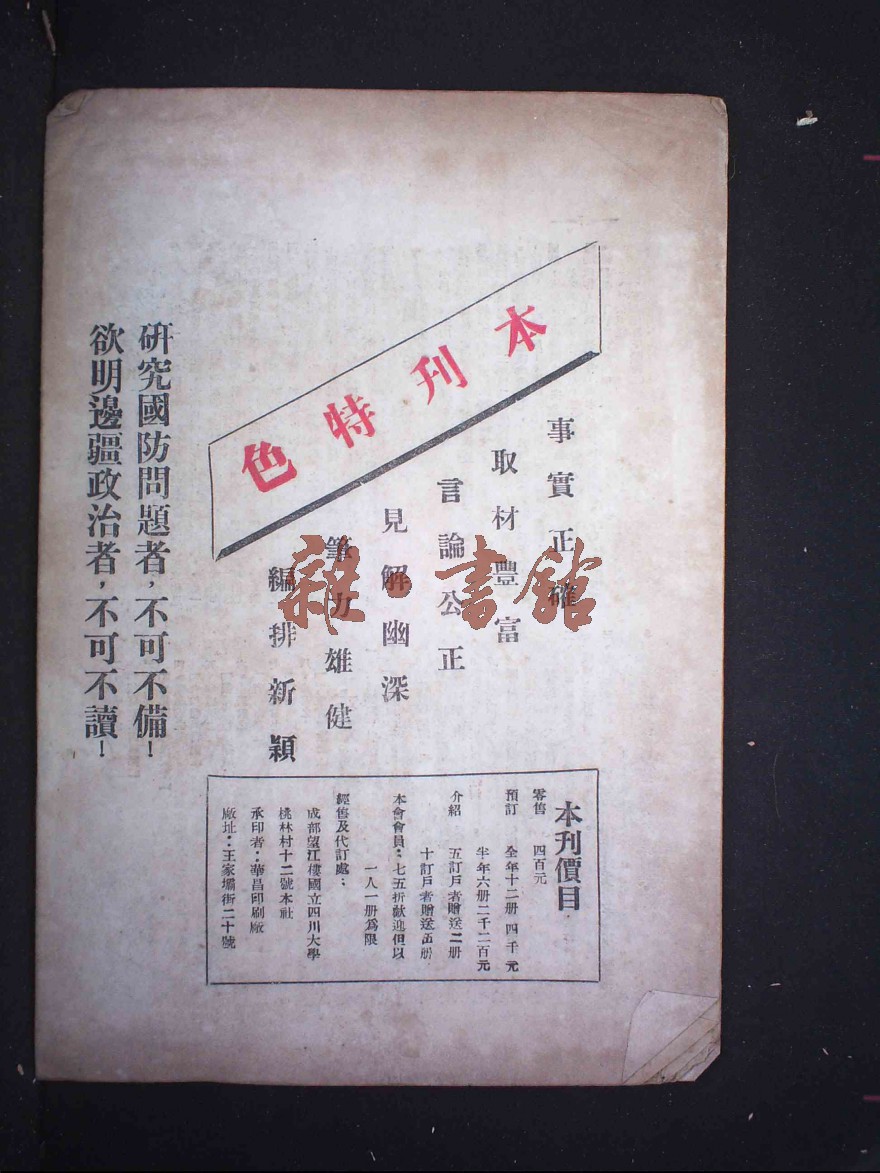 本刊特色
事實正確
取材豐富
言論公正
見解幽深
筆力雄健
編排新穎
本刊價目
零售　四百元
預訂　全年十二册　四千元
半年六册二千二百元
介紹　五訂戶者贈送二册
十訂戶者贈送五册
本會會員：七五折歡迎但以
一人一册爲限
經售及代訂處：
成都望江樓國立四川大學
桃林村十二號本社
承印者：華昌印刷廠
廠址：王家壩街二十號
研究國防問題者，不可不備！
欲明邊疆政治者，不可不讀！
雜·書館